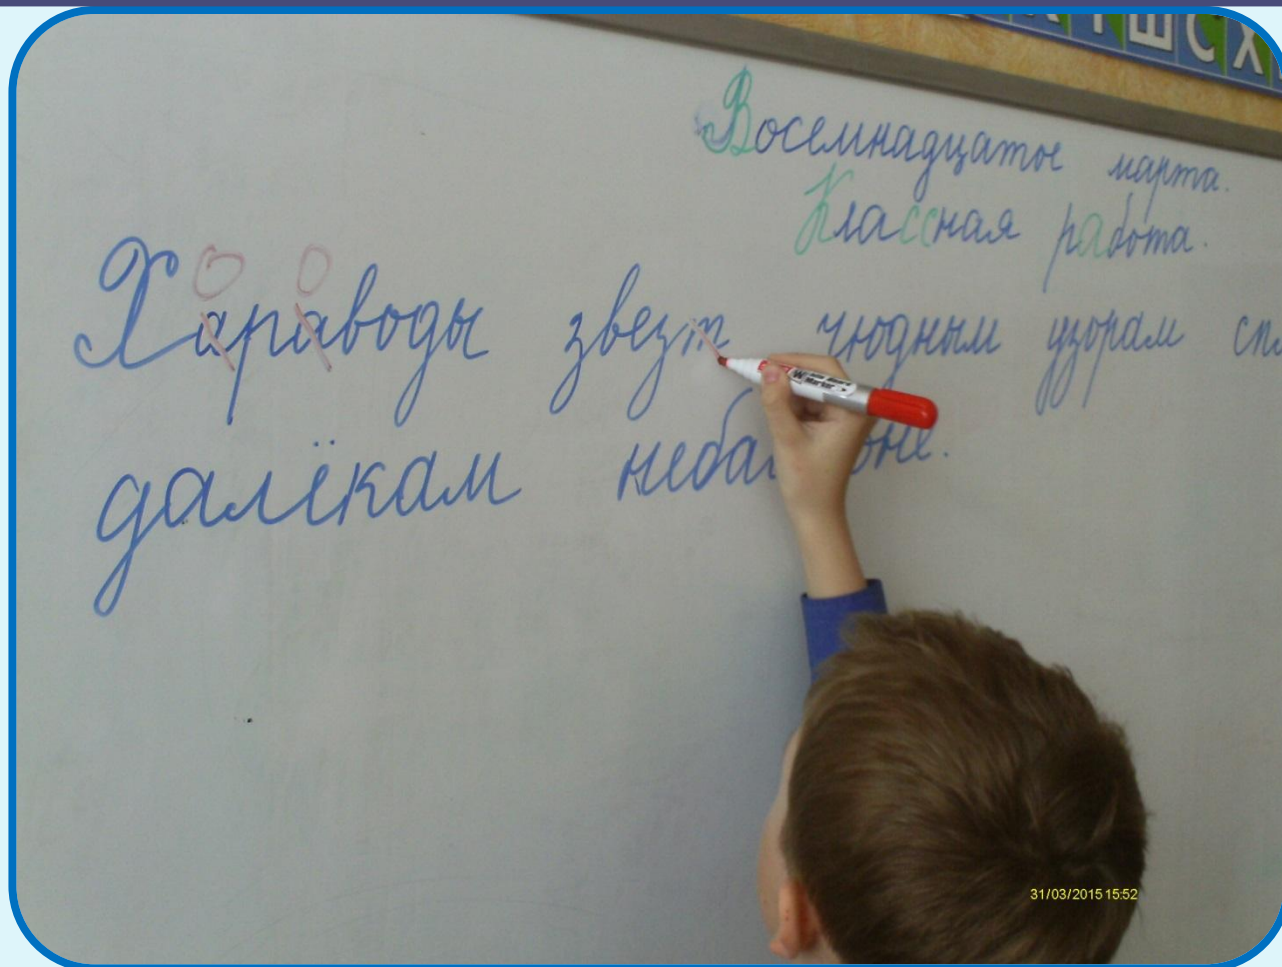 Восемнадцатое марта.
Классная работа.
О О
Хараводы звезт чюдным узорам спл
далёкам неба оне.
31/03/2015 15:52